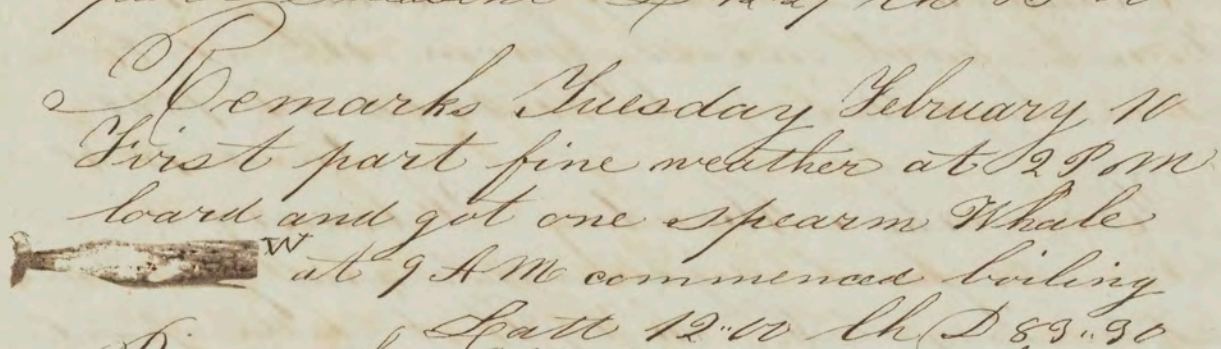 Remarks Tuesday February 10
First part fine weather at 2 P M
loard and got one spearm Whale
W
at 9 A M commenced boiling
Latt 12"00 Ch D 83"30